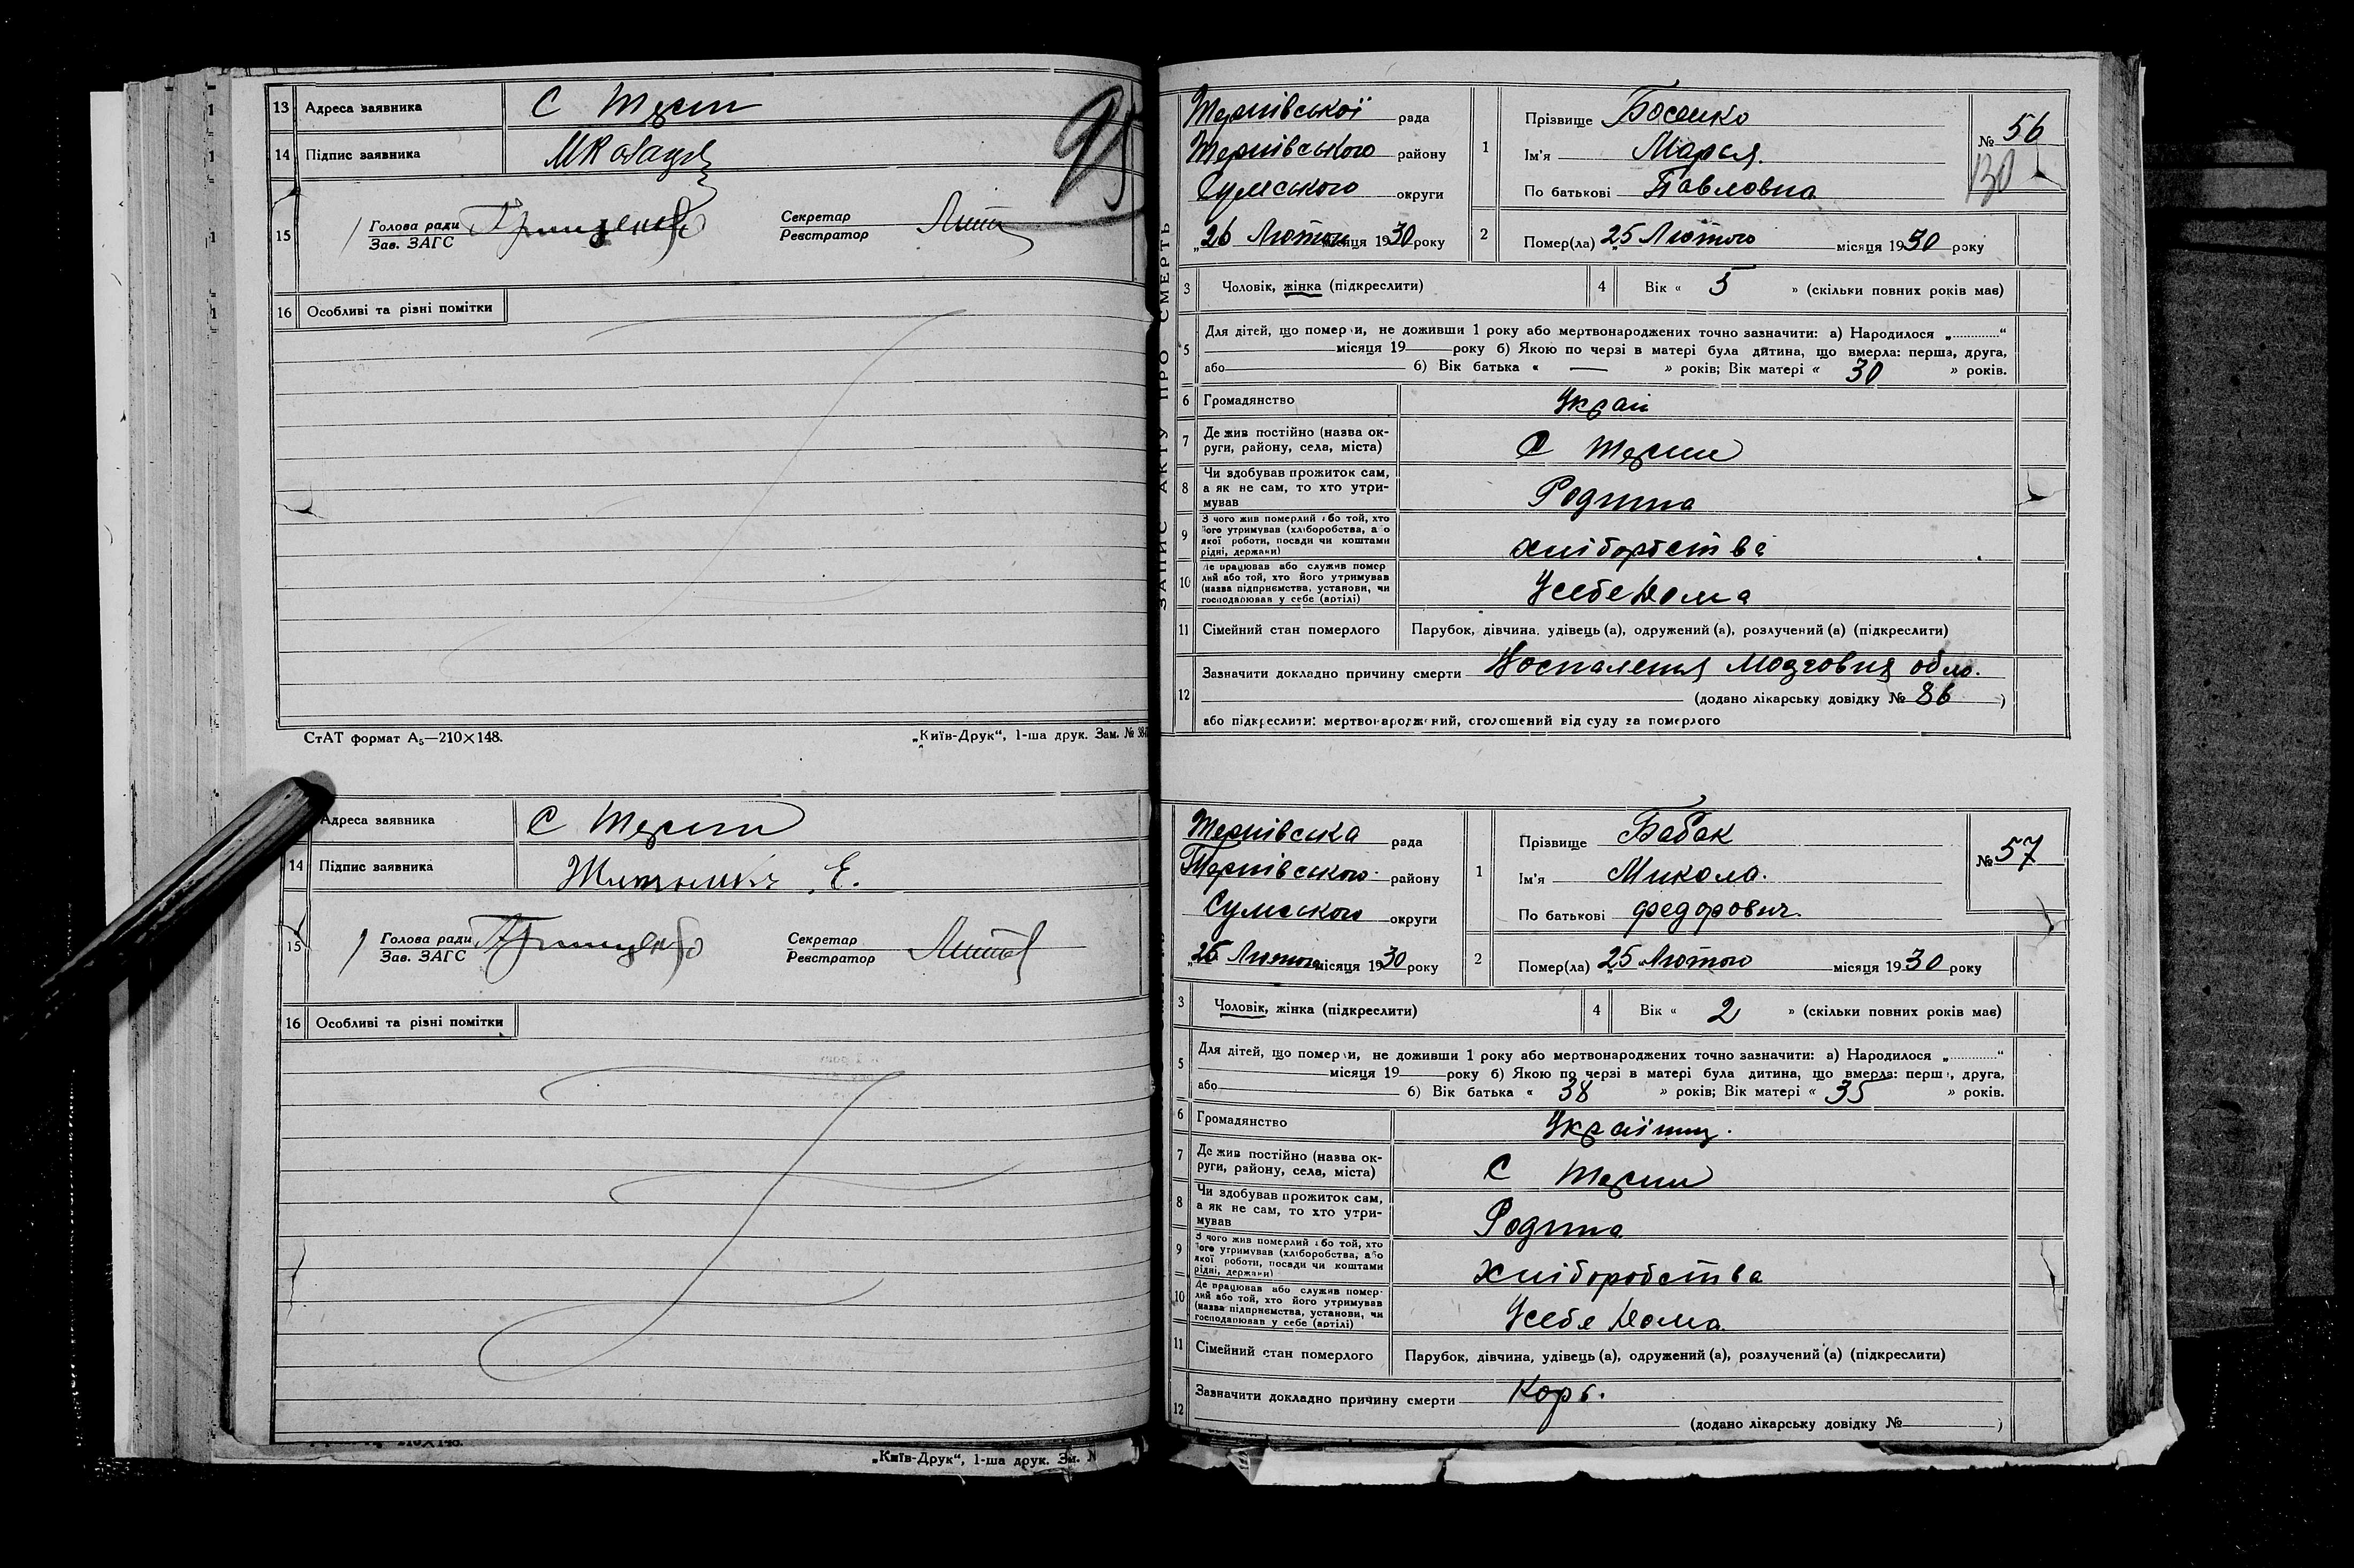 13 Адреса заявника С Терни
14 Підпис заявника
95
15 Голова ради Секретар
Зав. ЗАГС Реєстратор
16 Особливі та різні помітки
СтАТ формат А₅—210×148. „Київ-Друк“, 1-ша друк. Зам. №
Адреса заявника С Терни
14 Підпис заявника Е.
15 Голова ради Секретар
Зав. ЗАГС Реєстратор
16 Особливі та різні помітки
„Київ-Друк“, 1-ша друк. Зм. N
ЗАПИС АКТУ ПРО СМЕРТЬ
Тернівської рада
Тернівського району
Сумського округи
„26 Лютого місяця 1930 року
1 Прізвище Босенко
Ім'я Марья.
По батькові Павловна
№ 56
130
2 Помер(ла) „25 Лютого місяця 1930 року
3 Чоловік, жінка (підкреслити) 4 Вік « 5 » (скільки повних років має)
5 Для дітей, що померли, не доживши 1 року або мертвонароджених точно зазначити: а) Народилося „............“
місяця 19 року б) Якою по черзі в матері була дитина, що вмерла: перша, друга,
або б) Вік батька « — » років; Вік матері « 30 » років.
6 Громадянство Украї
7 Де жив постійно (назва округи, району, села, міста) С Терни
8 Чи здобував прожиток сам, а як не сам, то хто утримував Родина
9 З чого жив померлий або той, хто його утримував (хліборобства, або якої роботи, посади чи коштами рідні, держави) хліборобства
10 Де працював або служив померлий або той, хто його утримував (назва підприємства, установи, чи господарював у себе (артілі) Усебе Дома
11 Сімейний стан померлого Парубок, дівчина, удівець (а), одружений (а), розлучений (а) (підкреслити)
12 Зазначити докладно причину смерти Воспаления Мозговия обло.
(додано лікарську довідку № 86 )
або підкреслити: мертвонароджений, оголошений від суду за померлого
Тернівська рада
Тернівського району
Сумського округи
„25 Лютого місяця 1930 року
1 Прізвище Бабак
Ім'я Микола.
По батькові Федорович.
№ 57
2 Помер(ла) „25 Лютого місяця 1930 року
3 Чоловік, жінка (підкреслити) 4 Вік « 2 » (скільки повних років має)
5 Для дітей, що померли, не доживши 1 року або мертвонароджених точно зазначити: а) Народилося „............“
місяця 19 року б) Якою по черзі в матері була дитина, що вмерла: перша, друга,
або б) Вік батька « 38 » років; Вік матері « 35 » років.
6 Громадянство
7 Де жив постійно (назва округи, району, села, міста) С Терни
8 Чи здобував прожиток сам, а як не сам, то хто утримував Родина
9 З чого жив померлий або той, хто його утримував (хліборобства, або якої роботи, посади чи коштами рідні, держави) Хліборобства
10 Де працював або служив померлий або той, хто його утримував (назва підприємства, установи, чи господарював у себе (артілі) Усебе Дома
11 Сімейний стан померлого Парубок, дівчина, удівець (а), одружений (а), розлучений (а) (підкреслити)
12 Зазначити докладно причину смерти Корь.
(додано лікарську довідку № )